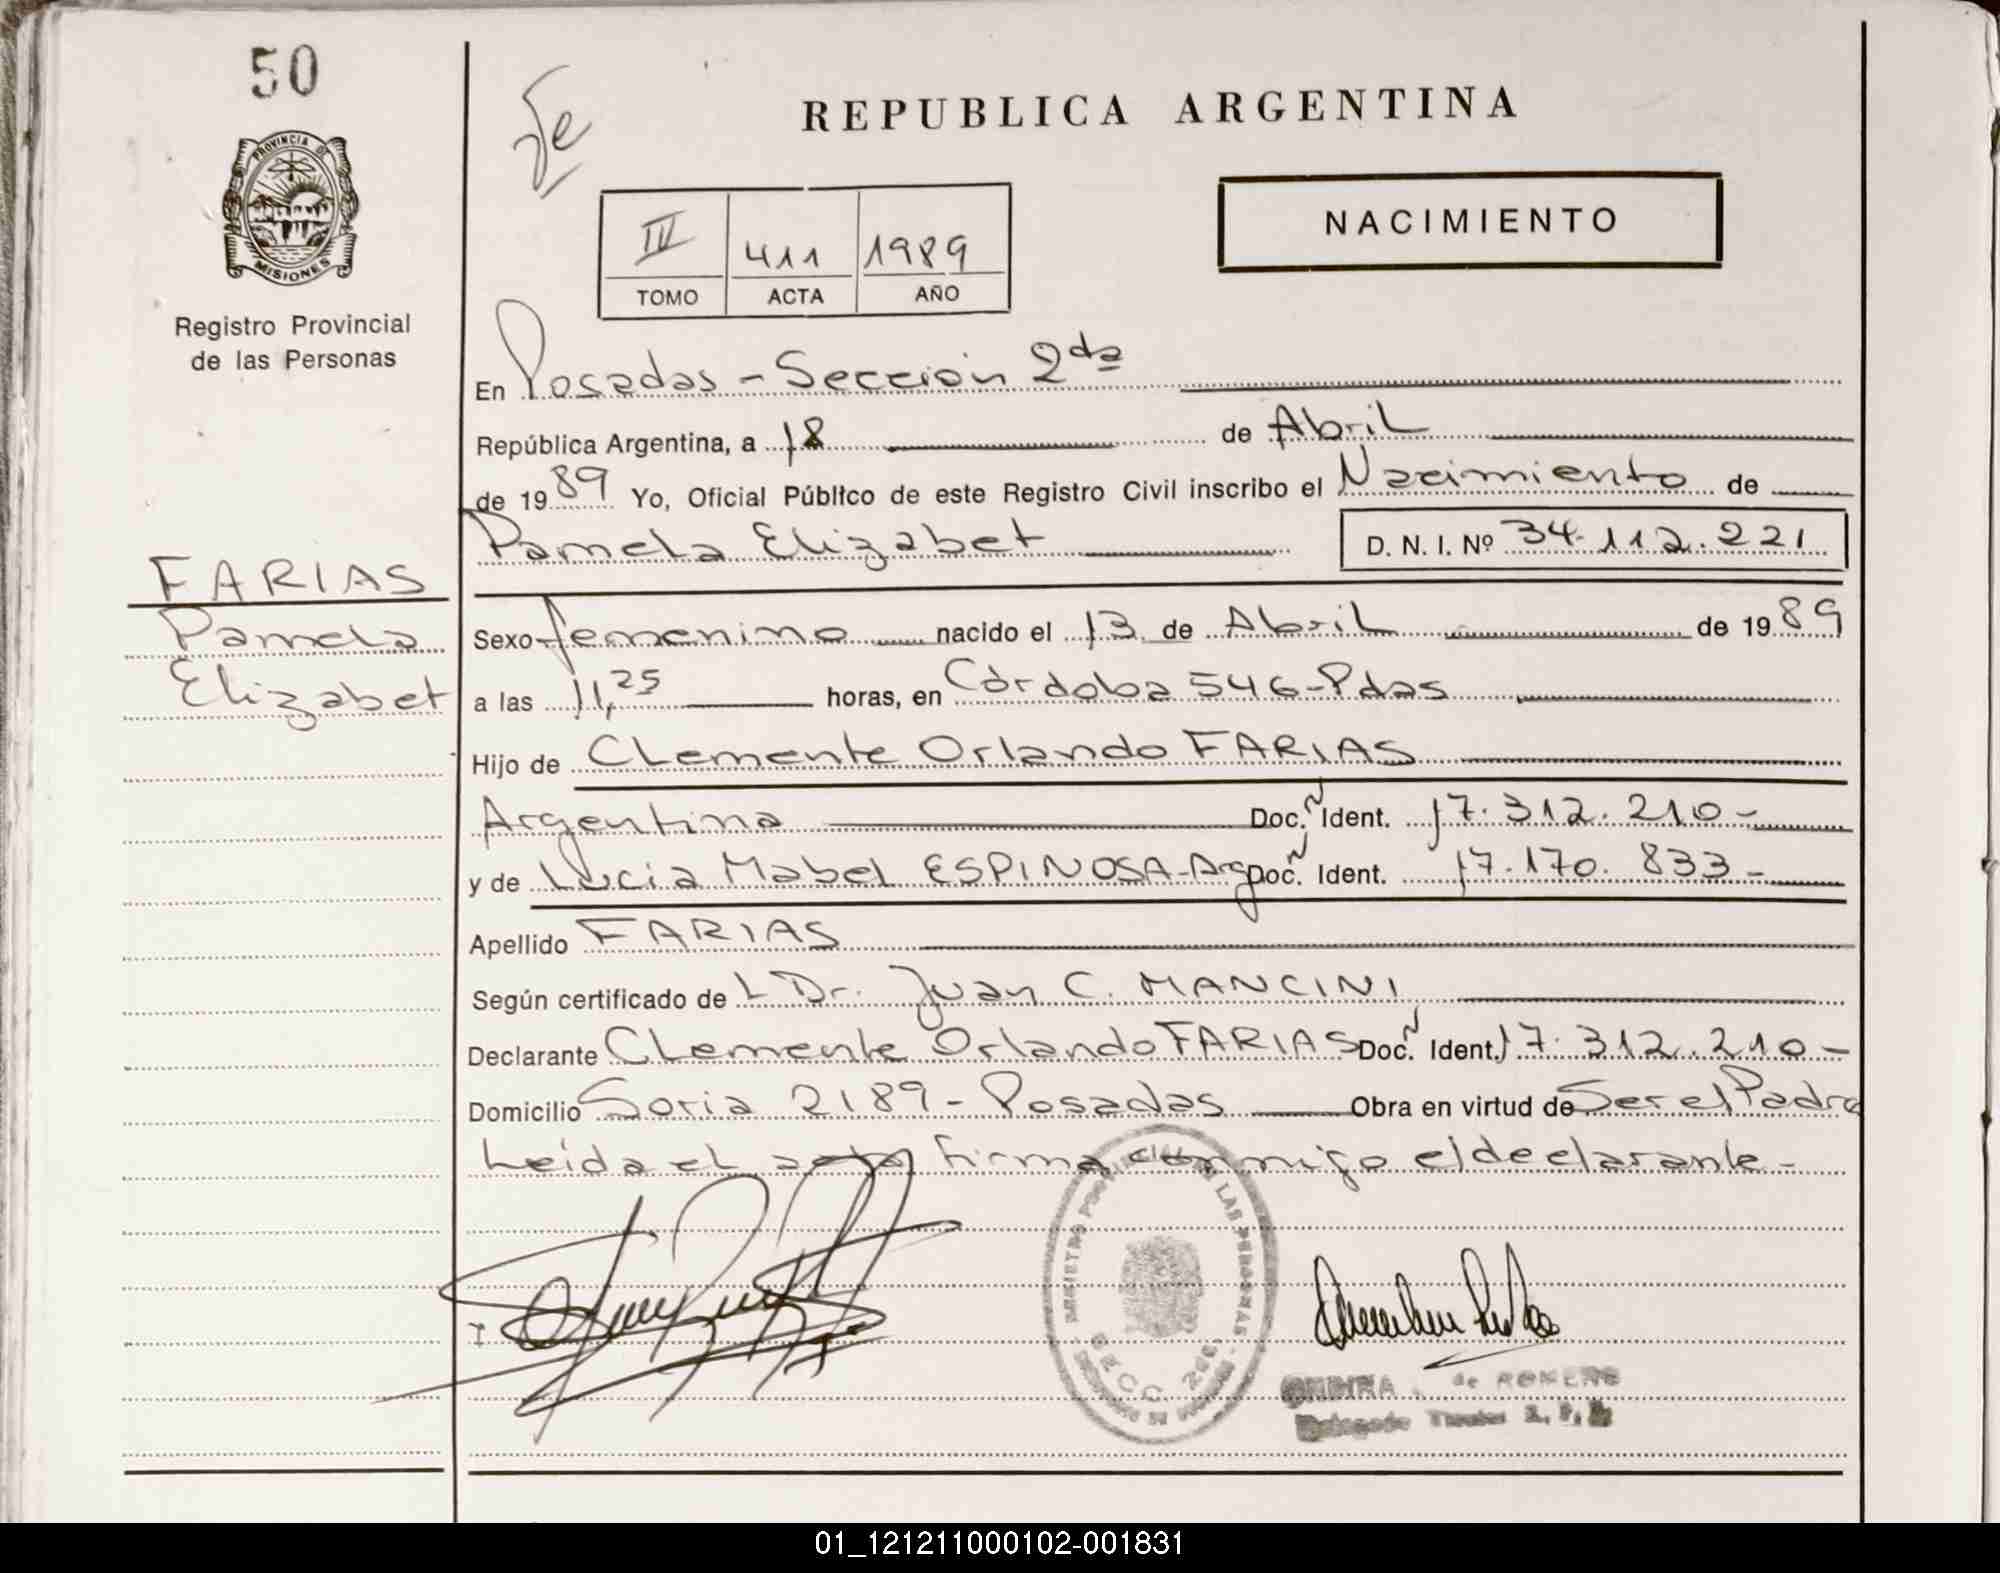 50
PROVINCIA DE
MISIONES
Registro Provincial
de las Personas
FARIAS
Pamela
Elizabet
Fe
REPUBLICA ARGENTINA
NACIMIENTO
IV 411 1989
TOMO ACTA AÑO
En Posadas - Sección 2da
República Argentina, a 18 de Abril
de 1989 Yo, Oficial Público de este Registro Civil inscribo el Nacimiento de
Pamela Elizabet D. N. I. Nº 34.112.221
Sexo femenino nacido el 13 de Abril de 1989
a las 11,25 horas, en Córdoba 546-Pdas
Hijo de Clemente Orlando FARIAS
Argentina Doc. Ident. 17.312.210-
y de Lucia Mabel ESPINOSA-Arg Doc. Ident. 17.170.833-
Apellido FARIAS
Según certificado de L Dr. Juan C. MANCINI
Declarante Clemente Orlando FARIAS Doc. Ident. 17.312.210-
Domicilio Soria 2189 - Posadas Obra en virtud de Ser el Padre
Leída el acta firma conmigo el declarante-
REGISTRO PROVINCIAL DE LAS PERSONAS
SECC. 2da.
de ROMERO
Delegado Titular
01_121211000102-001831